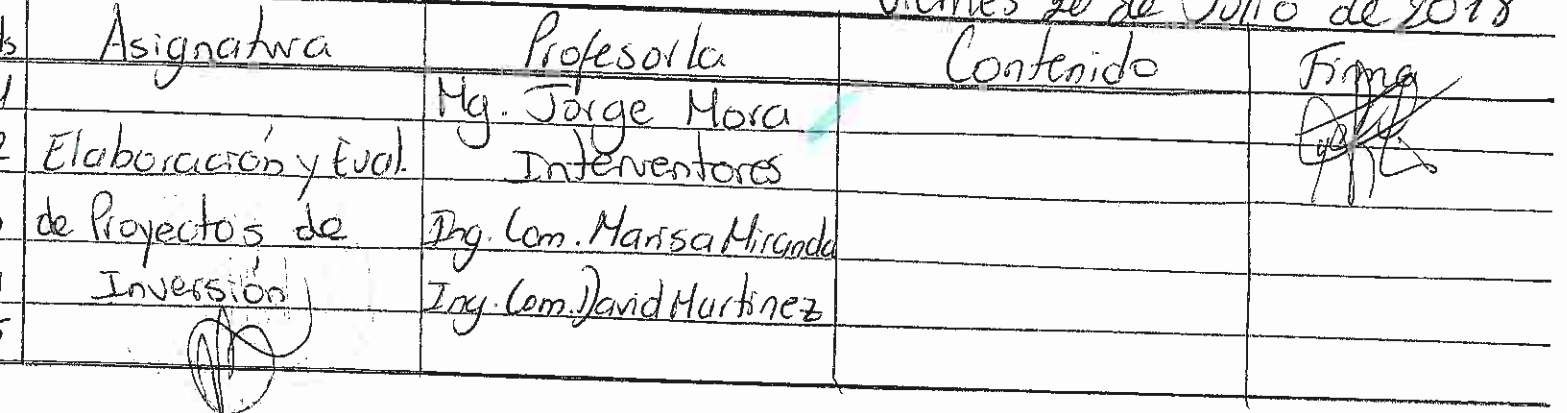 Viernes 20 de Julio de 2018
Asignatura Profesor/a Contenido Firma
Mg. Jorge Mora
2 Elaboración y Eval. Interventores
de Proyectos de Ing. Com. Marisa Miranda
Inversión Ing. Com. David Martinez
5